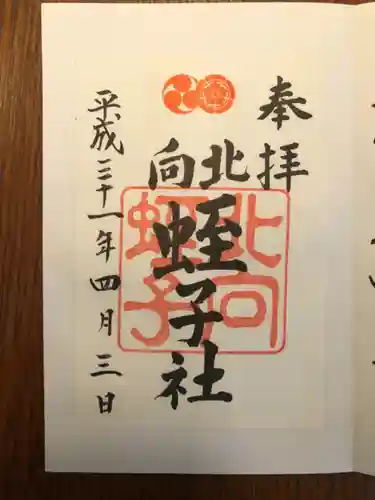 奉拝
北向
蛭子社
平成三十一年四月三日
北向
蛭子